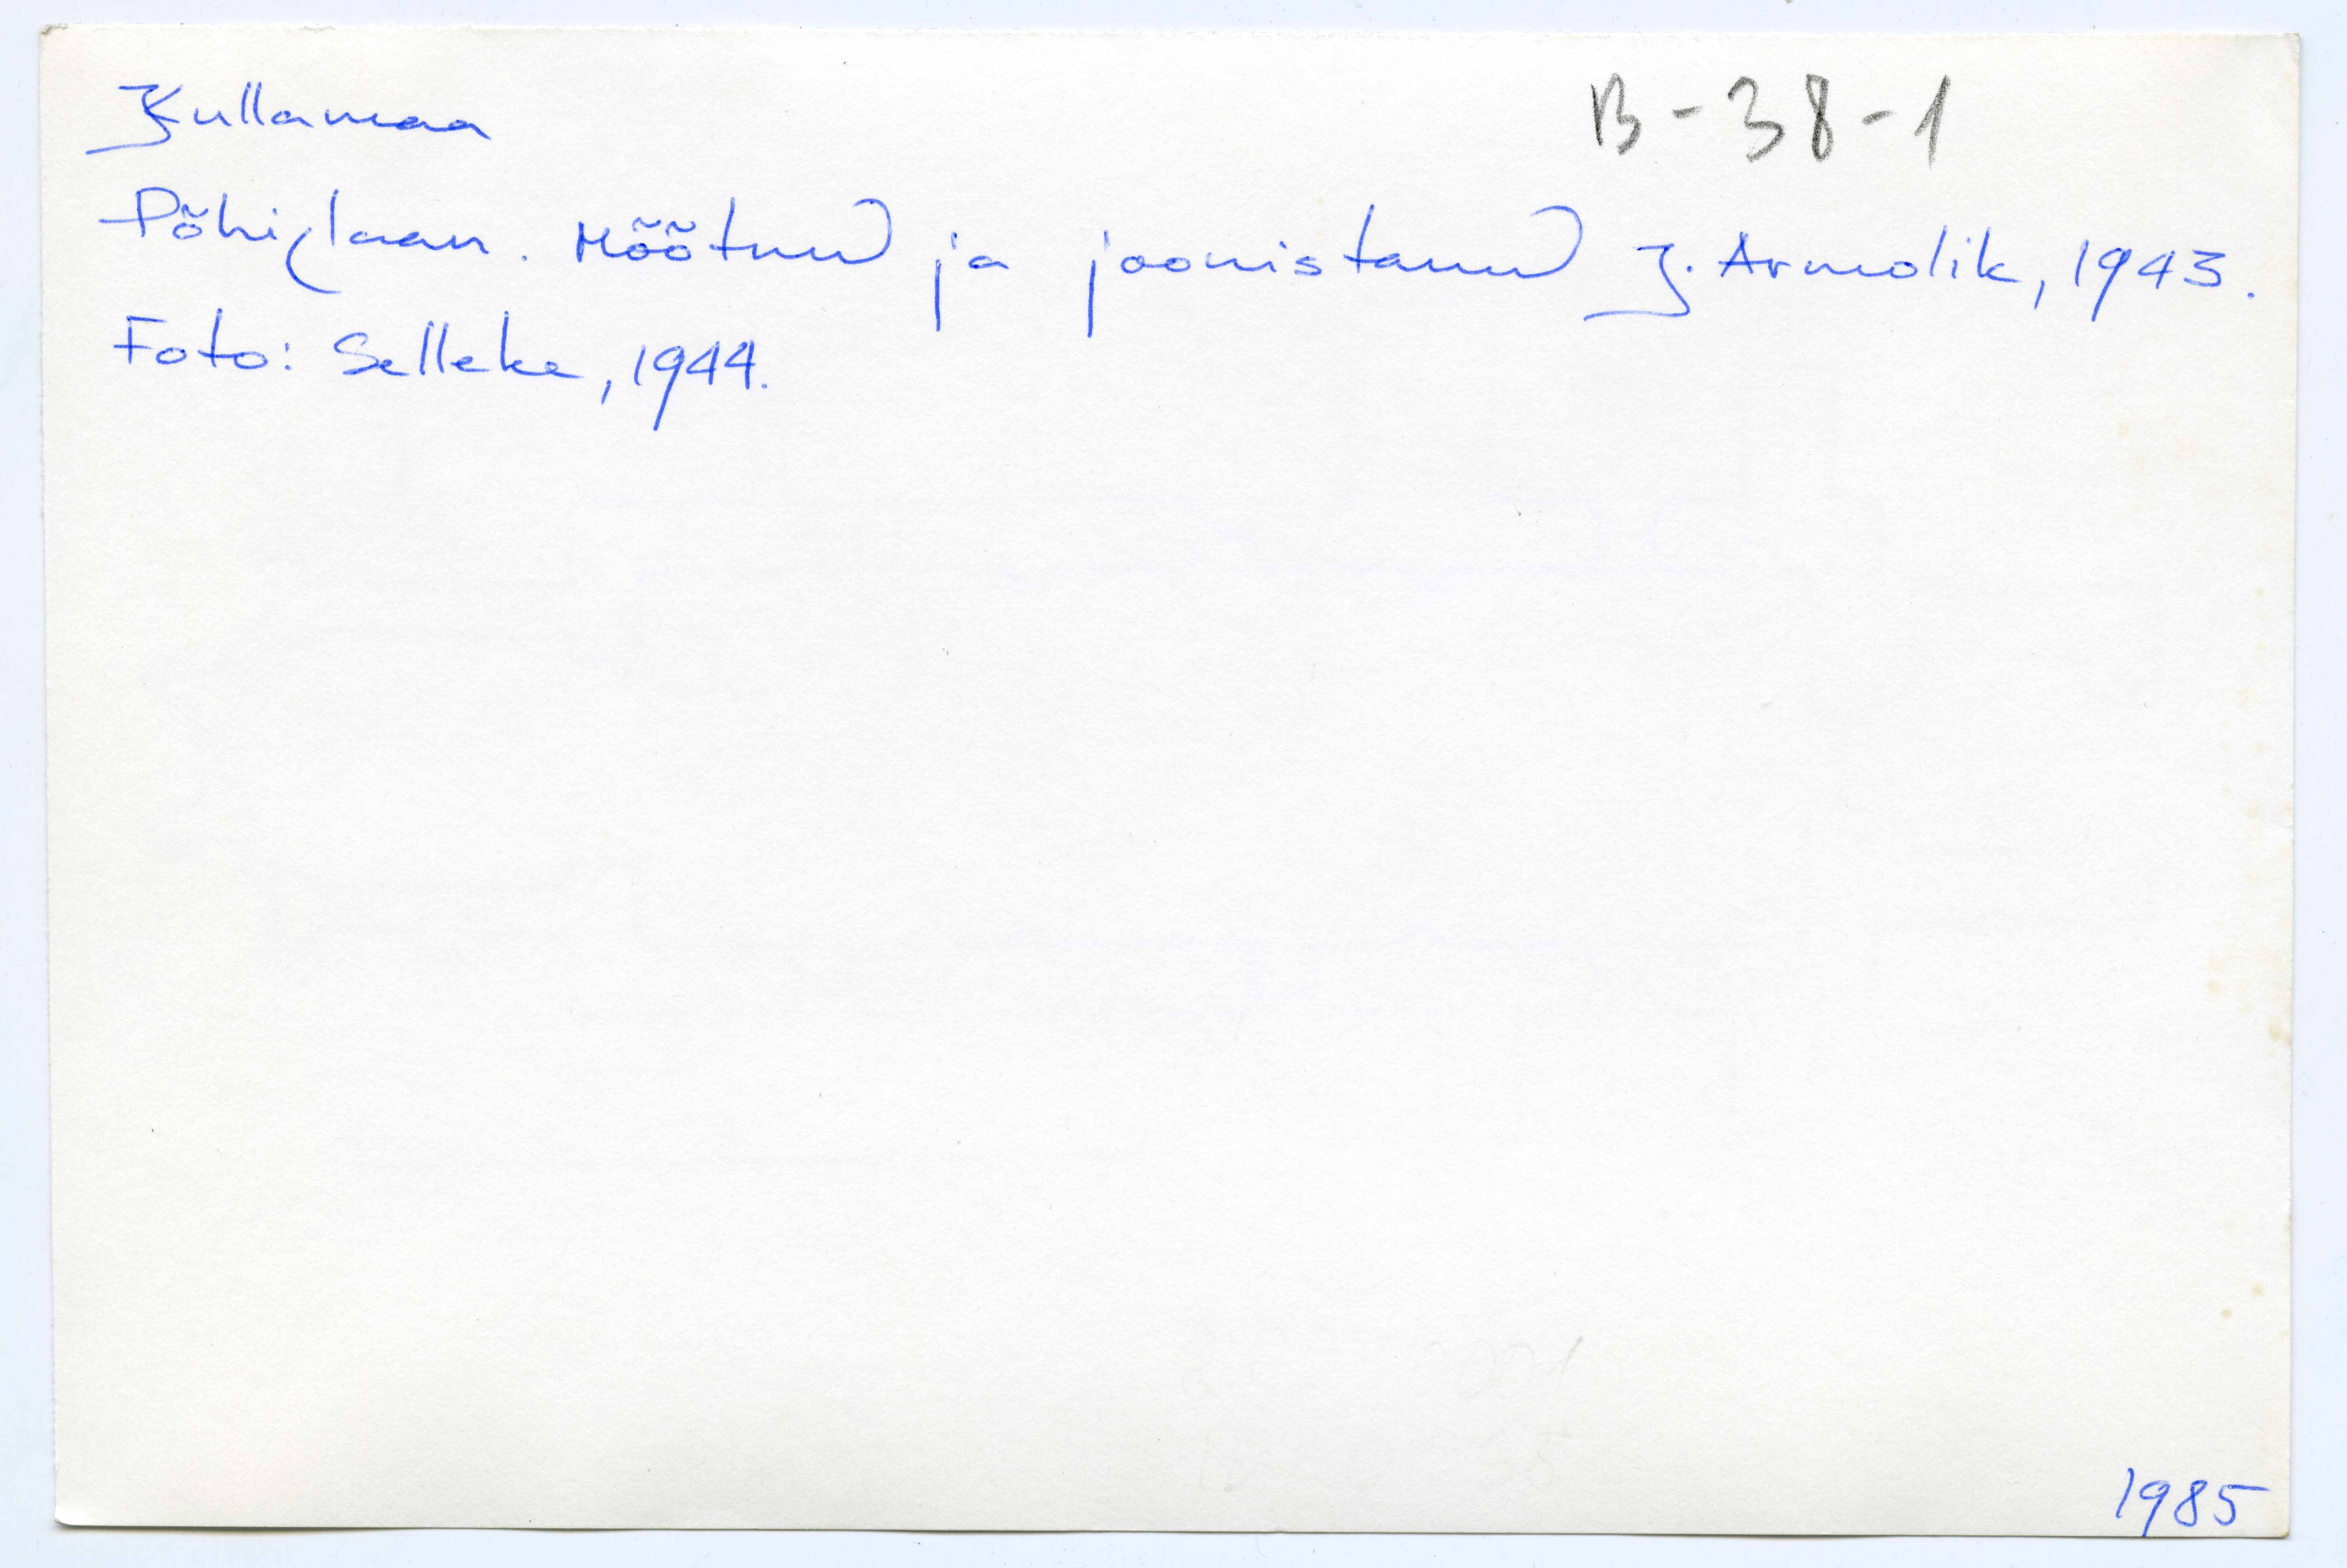 Kullamaa
B-38-1
Põhiplaan. Mõõtnud ja joonistanud J. Armolik, 1943.
Foto: Selleke, 1944.
1985